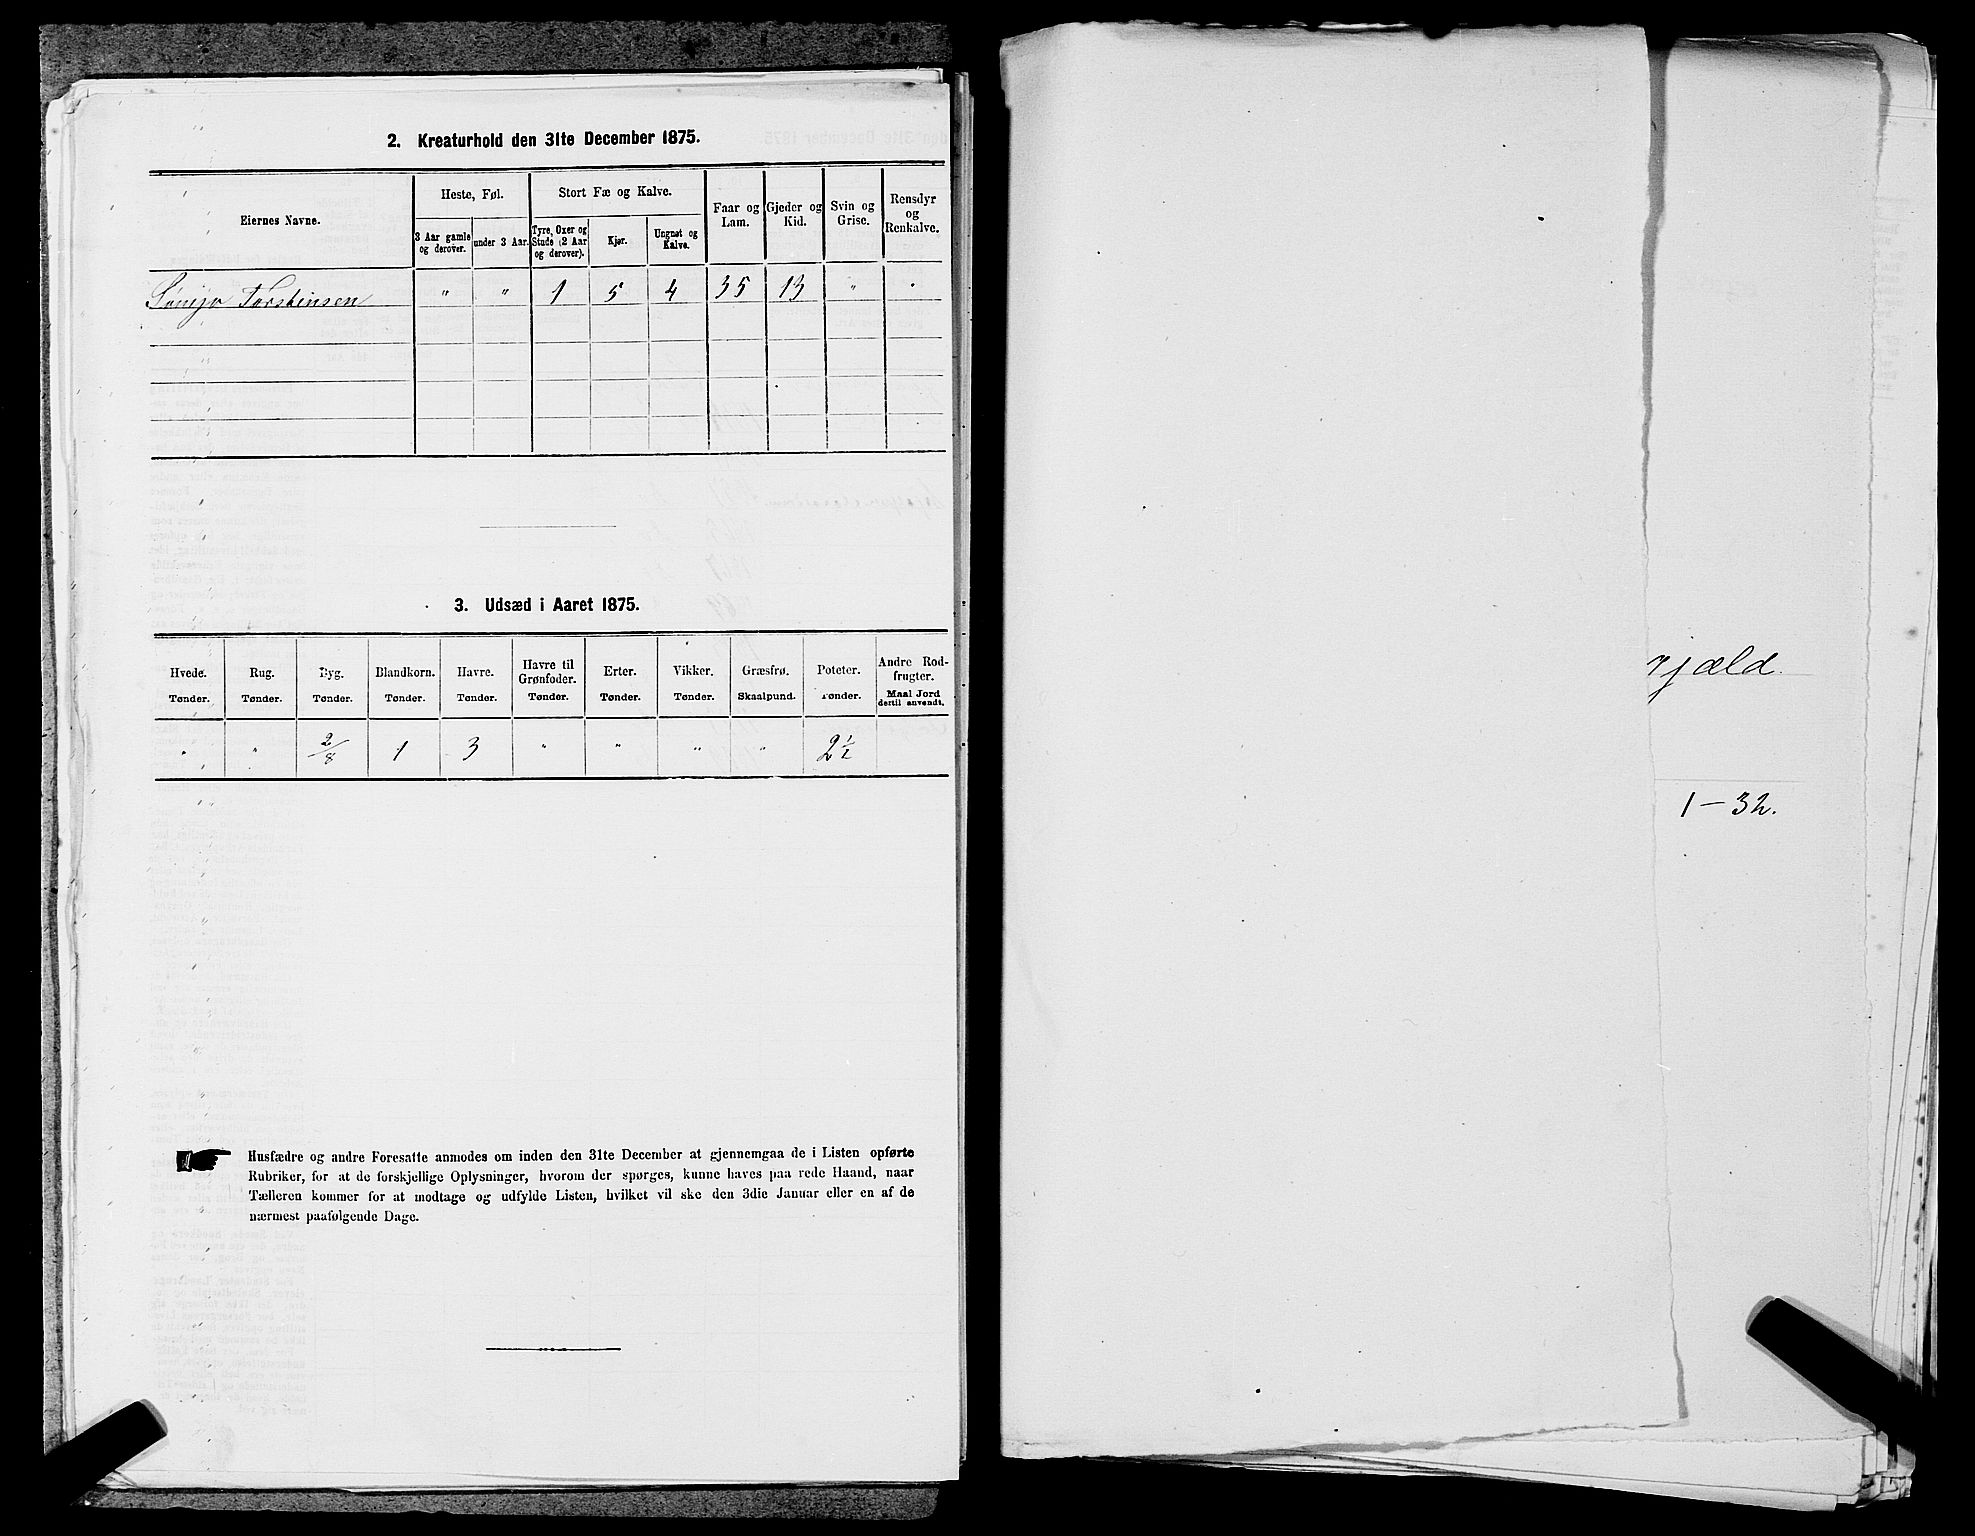 2. Kreaturhold den 31te December 1875.
Eiernes Navne.
Heste, Føl.
Stort Fæ og Kalve.
Faar og Lam.
Gjeder og Kid.
Svin og Grise.
Rensdyr og Renkalve.
3 Aar gamle og derover.
under 3 Aar.
Tyre, Oxer og Stude (2 Aar og derover).
Kjør.
Ungnøt og Kalve.
Torstensen " " 1 5 4 35 13 " "
3. Udsæd i Aaret 1875.
Hvede. Rug. Byg. Blandkorn. Havre. Havre til Grønfoder. Erter. Vikker. Græsfrø. Poteter. Andre Rodfrugter.
Tønder. Tønder. Tønder. Tønder. Tønder. Tønder. Tønder. Tønder. Skaalpund. Tønder. Maal Jord dertil anvendt.
" " 2/8 1 3 " " " " 2 1/2
Husfædre og andre Foresatte anmodes om inden den 31te December at gjennemgaa de i Listen opførte
Rubriker, for at de forskjellige Oplysninger, hvorom der spørges, kunne haves paa rede Haand, naar
Tælleren kommer for at modtage og udfylde Listen, hvilket vil ske den 3die Januar eller en af de
nærmest paafølgende Dage.
gjæld.
1-32.